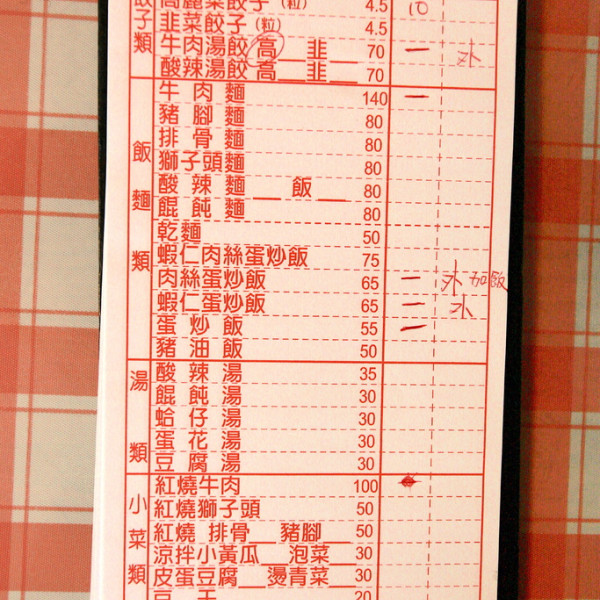 餃子類
高麗菜餃子(粒) 4.5 10
韭菜餃子(粒) 4.5
牛肉湯餃高__韭__ 70 一
酸辣湯餃高__韭__ 70
飯麵類
牛肉麵 140 一
豬腳麵 80
排骨麵 80
獅子頭麵 80
酸辣麵__飯__ 80
餛飩麵 80
乾麵 50
蝦仁肉絲蛋炒飯 75
肉絲蛋炒飯 65 一 加飯
蝦仁蛋炒飯 65 一
蛋炒飯 55 一
豬油飯 50
湯類
酸辣湯 35
餛飩湯 30
蛤仔湯 30
蛋花湯 30
豆腐湯 30
小菜類
紅燒牛肉 100
紅燒獅子頭 50
紅燒 排骨__豬腳__ 50
涼拌小黃瓜__泡菜__ 30
皮蛋豆腐__燙青菜__ 30
豆干 20